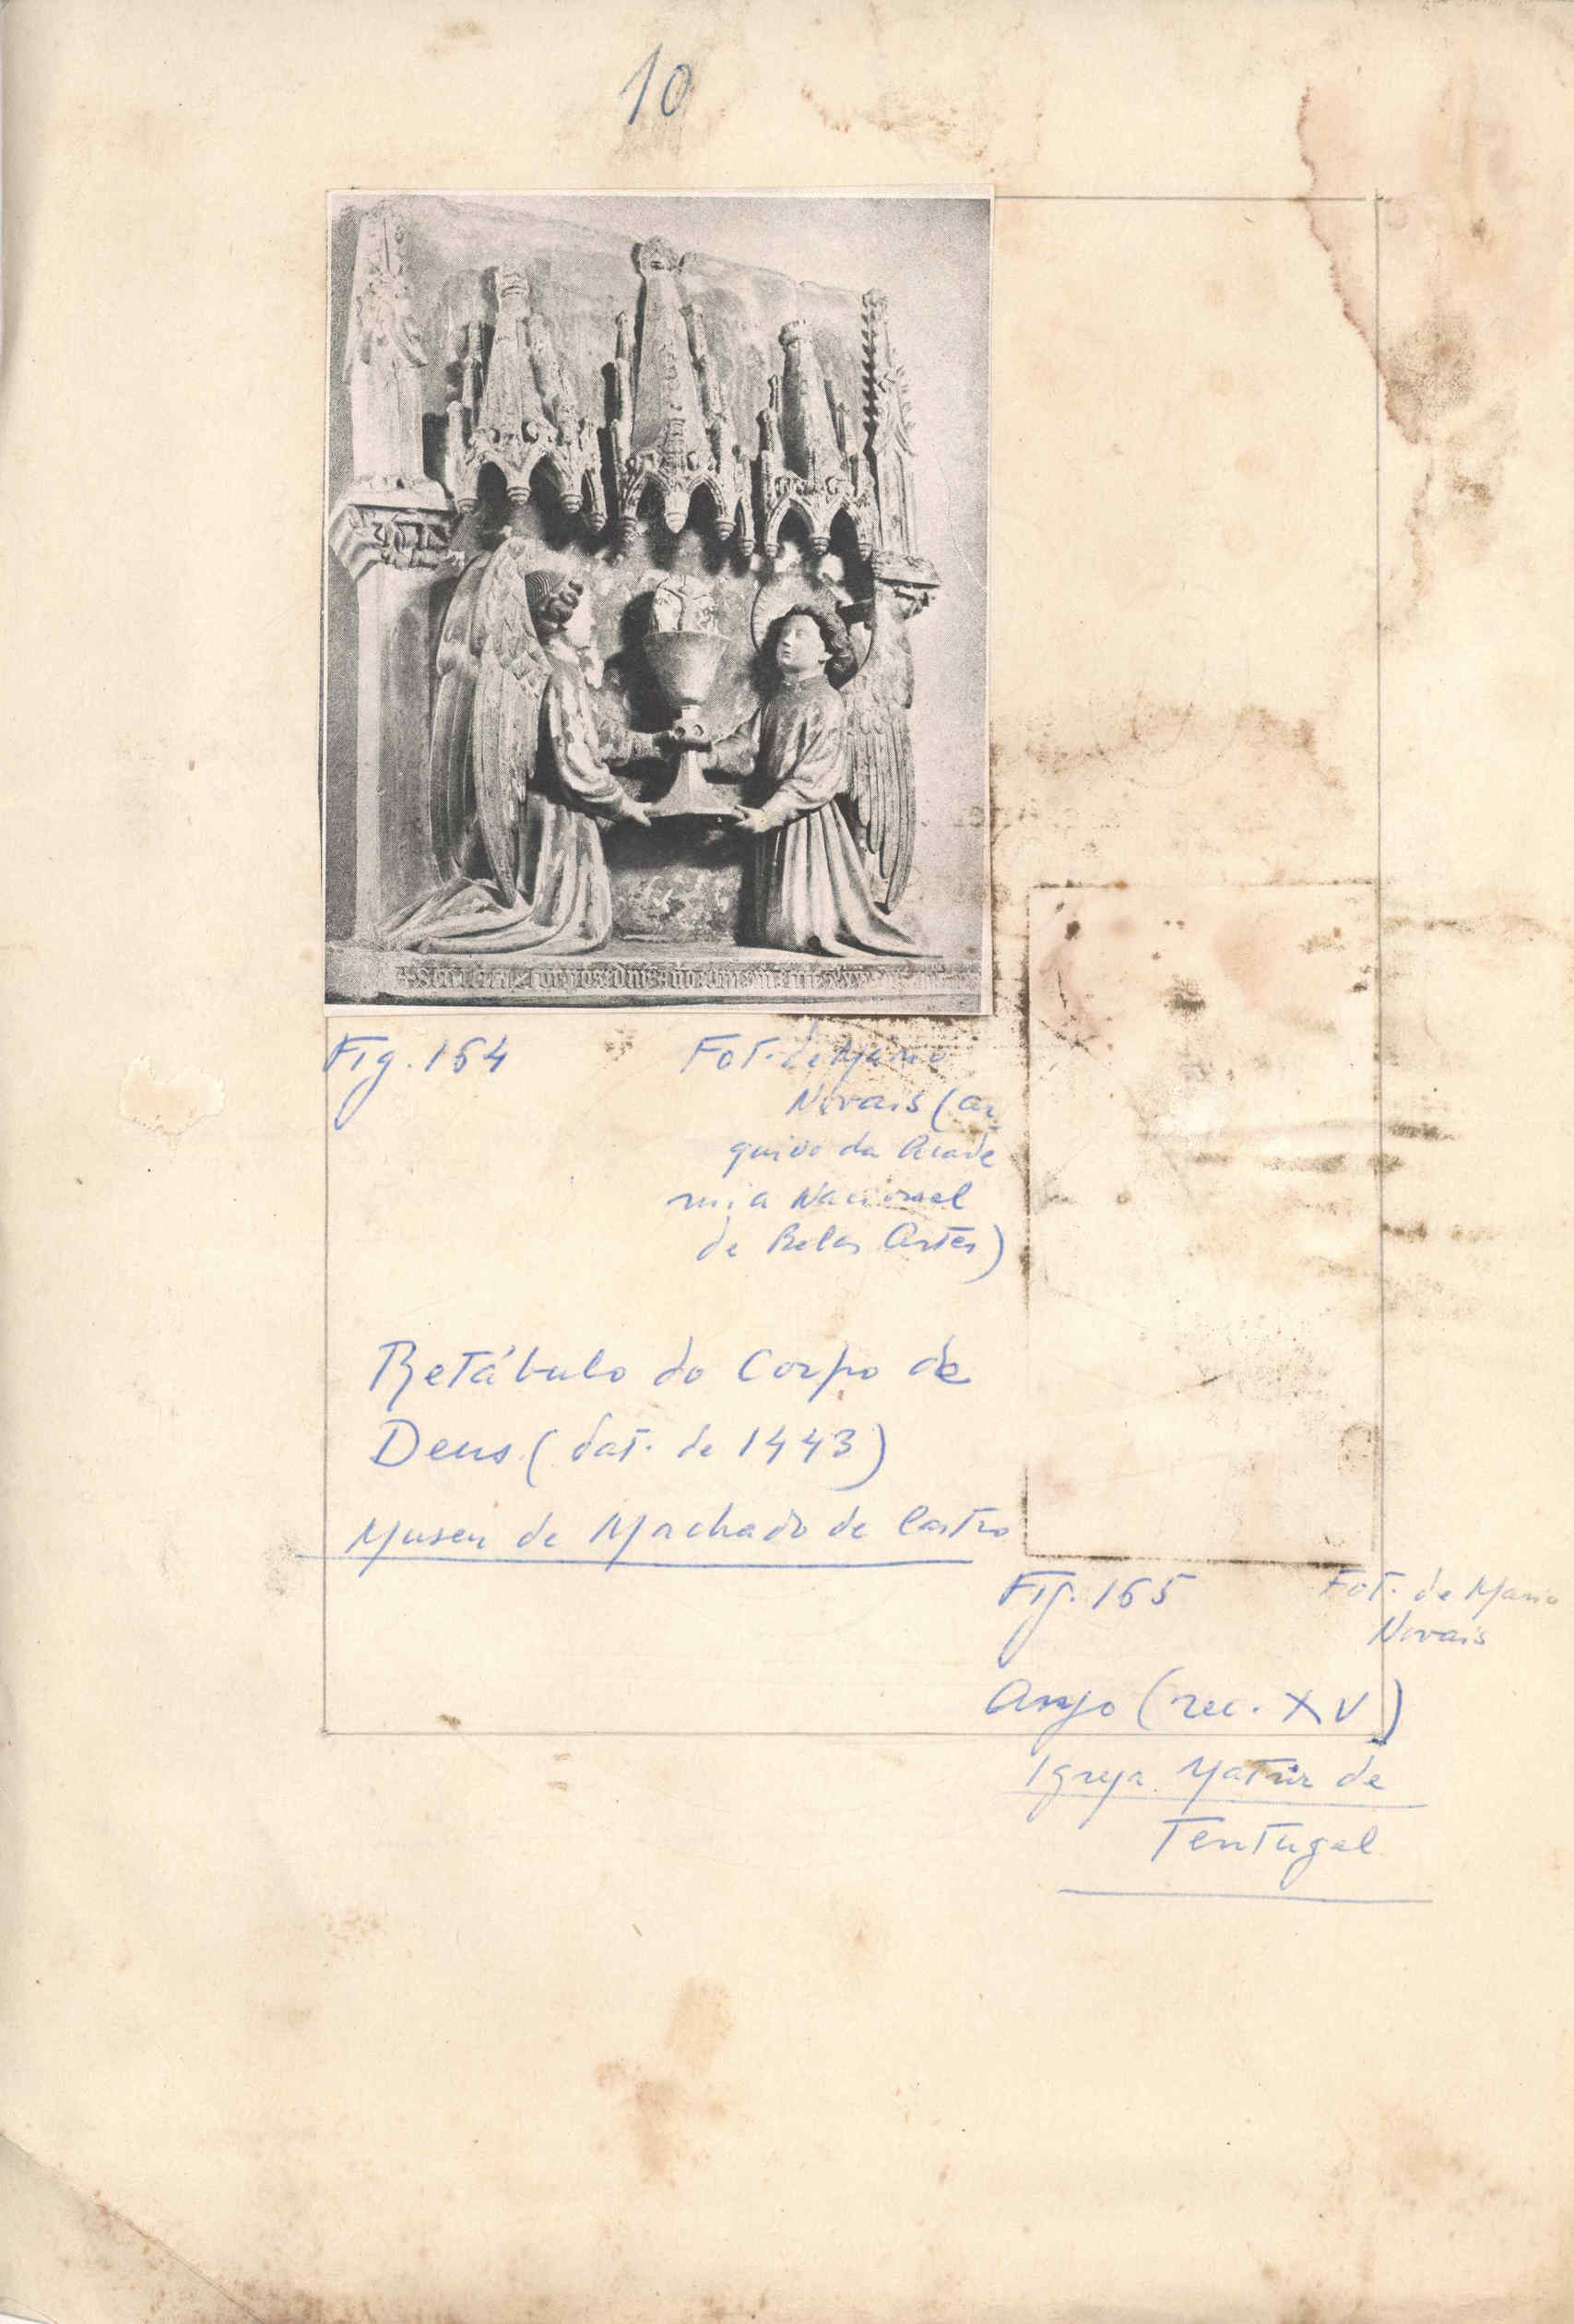 10
Fig. 164
Fot. de Mario
Novais (ar
quivo da Acade
mia Nacional
de Belas Artes)
Retábulo do Corpo de
Deus (dat. de 1443)
Museu de Machado de Castro
Fig. 165
Fot. de Mario
Novais
Anjo (sec. XV)
Igreja Matriz de
Tentugal